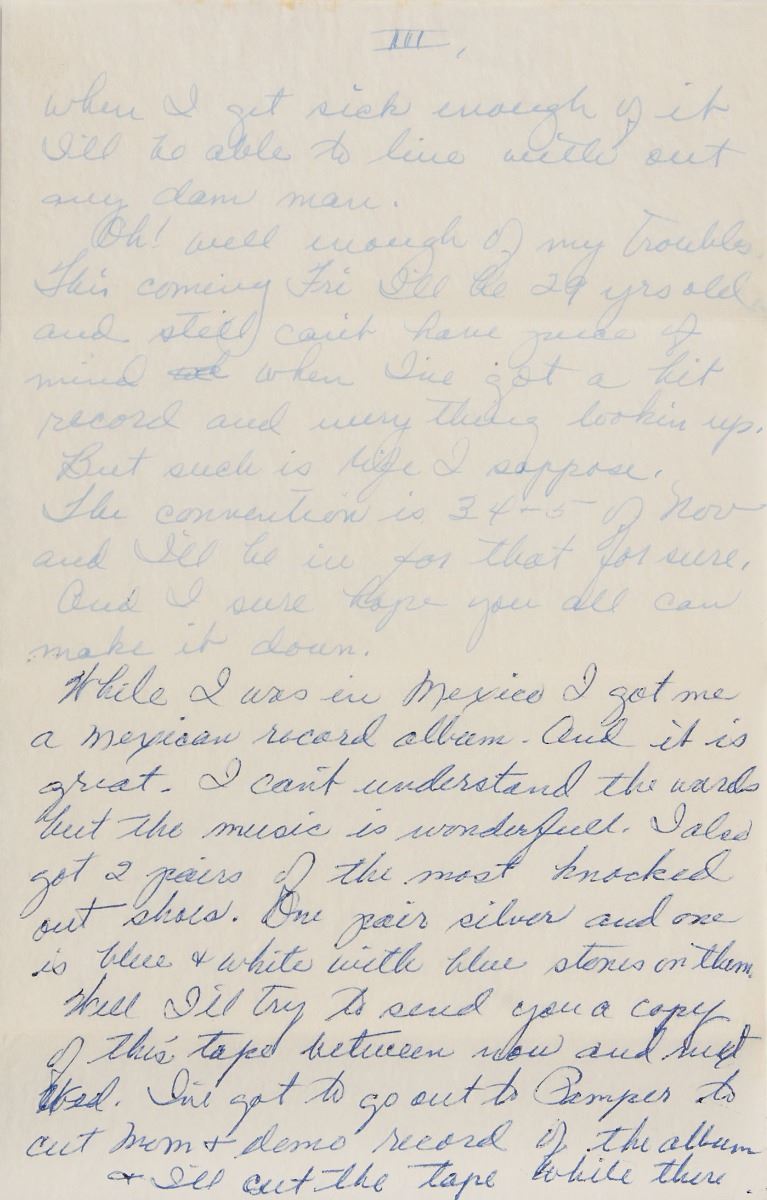 III,
when I get sick enough of it
I'll be able to live with out
any dam man.
Oh! well enough of my troubles.
This coming Fri I'll be 29 yrs old
and still can't have peace of
mind when I've got a hit
record and every thing lookin up.
But such is life I soppose.
The convention is 34-5 of Nov
and I'll be in for that for sure.
And I sure hope you all can
make it down.
While I was in Mexico I got me
a Mexican record album. And it is
great. I can't understand the words
but the music is wonderfull. I also
got 2 pairs of the most knocked
out shoes. One pair silver and one
is blue & white with blue stones on them.
Well I'll try to send you a copy
of this tape between now and next
Wed. I've got to go out to Pamper to
cut Mom a demo record of the album
& I'll cut the tape while there.